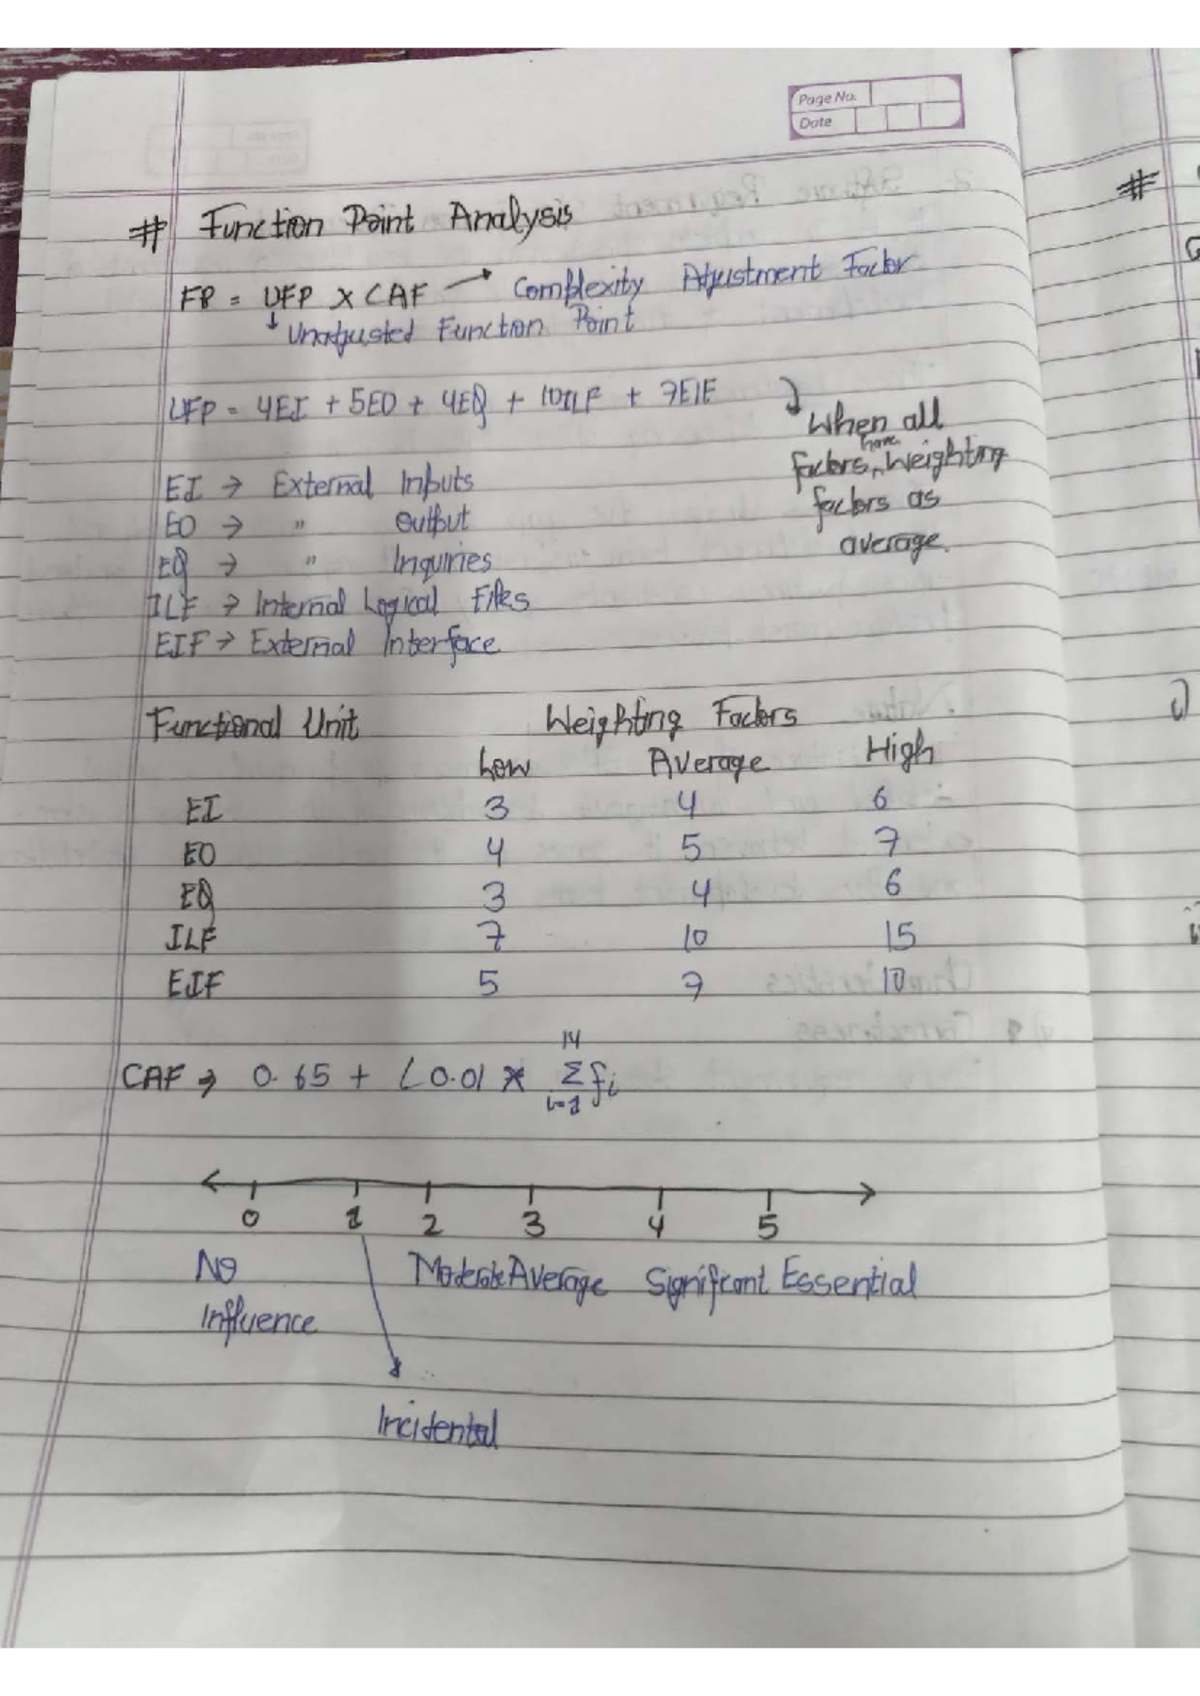 Page No.
Date
# Function Point Analysis
FP = UFP X CAF → Complexity Adjustment Factor
↓ Unadjusted Function Point
UFP = 4EI + 5EO + 4EQ + 10ILF + 7EIF
When all
factors have weighting
factors as
average.
EI → External Inputs
EO → " output
EQ → " Inquiries
ILF → Internal Logical Files
EIF → External Interface
Functional Unit Weighting Factors
Low Average High
EI 3 4 6
EO 4 5 7
EQ 3 4 6
ILF 7 10 15
EIF 5 7 10
CAF → 0.65 + (0.01 * 14 Σ i=1 fi
0 1 2 3 4 5
No Moderate Average Significant Essential
Influence
Incidental
#
i)